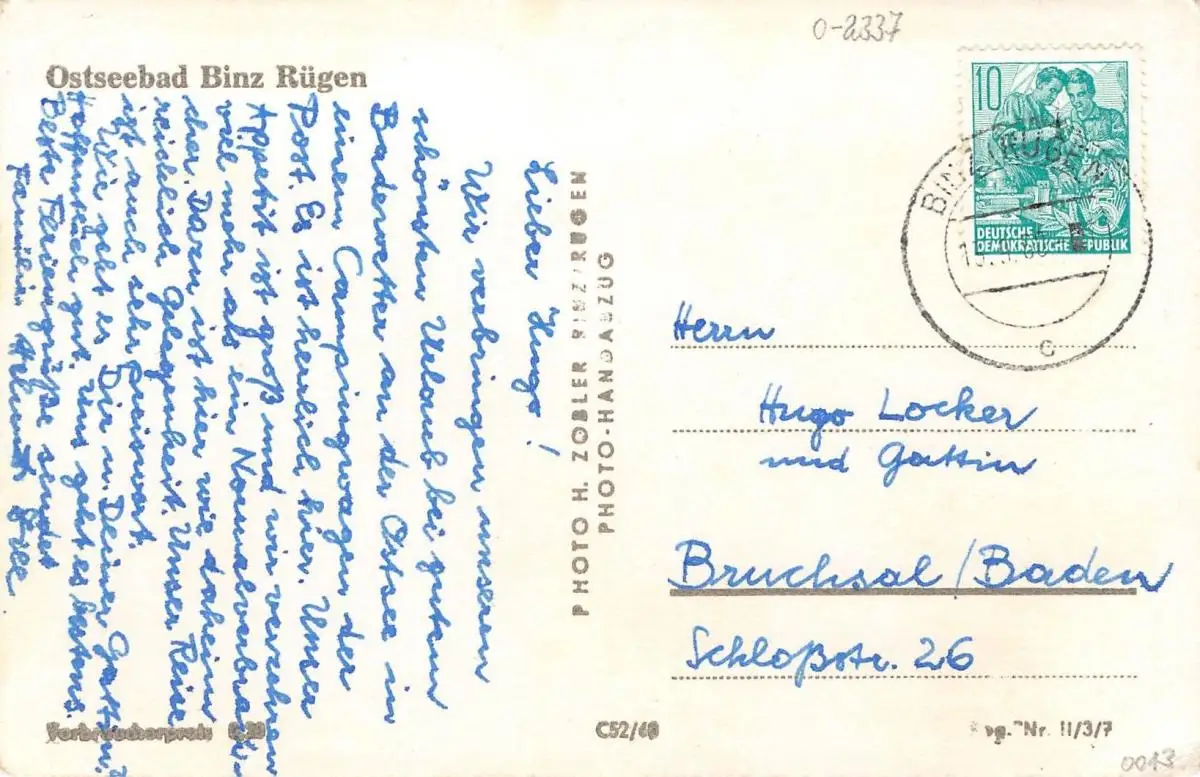 0-2337
Ostseebad Binz Rügen
Lieber Hugo!
Wir verbringen unseren
schönsten Urlaub bei gutem
Badewetter an der Ostsee in
einem Campingwagen der
Post. Es ist herrlich hier. Unser
Appetit ist groß und wir verzehren
viel mehr als ein Normalverbrau-
cher. Daran ist hier wie daheim
reichlich Gelegenheit. Unser Reise
ist auch sehr preiswert.
Wie geht es Dir u. Deiner Gattin?
Hoffentlich gut. Uns geht es bestens.
Beste Feriengrüße sendet
Familie Helmut
PHOTO H. ZOBLER BINZ/RÜGEN
PHOTO-HANDABZUG
10
5
DEUTSCHE
DEMOKRATISCHE REPUBLIK
BINZ RÜGEN
c
Herrn
Hugo Locker
und Gattin
Bruchsal/Baden
Schloßstr. 26
Verbraucherpreis
C52/60
Nr. II/3/7
0013